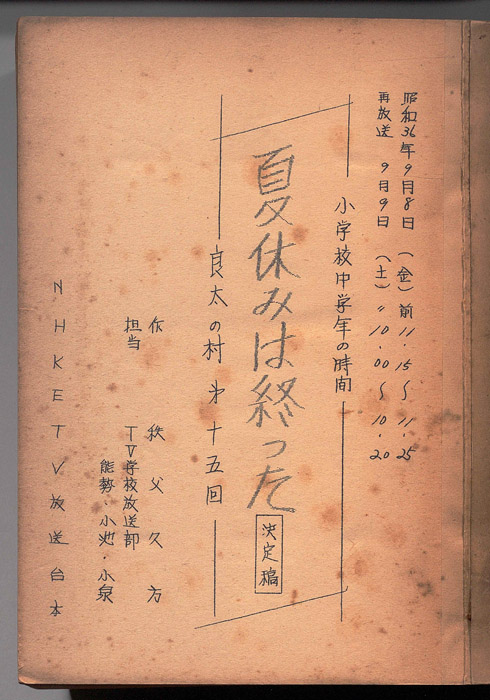 昭和36年9月8日（金）前11.15～11.25
再放送 9月9日（土）〃10.00～10.20
小学校中学年の時間
夏休みは終った
決定稿
良太の村 第十五回
作 秩父久方
担当 TV学校放送部
能勢・小池・小泉
NHKETV放送台本